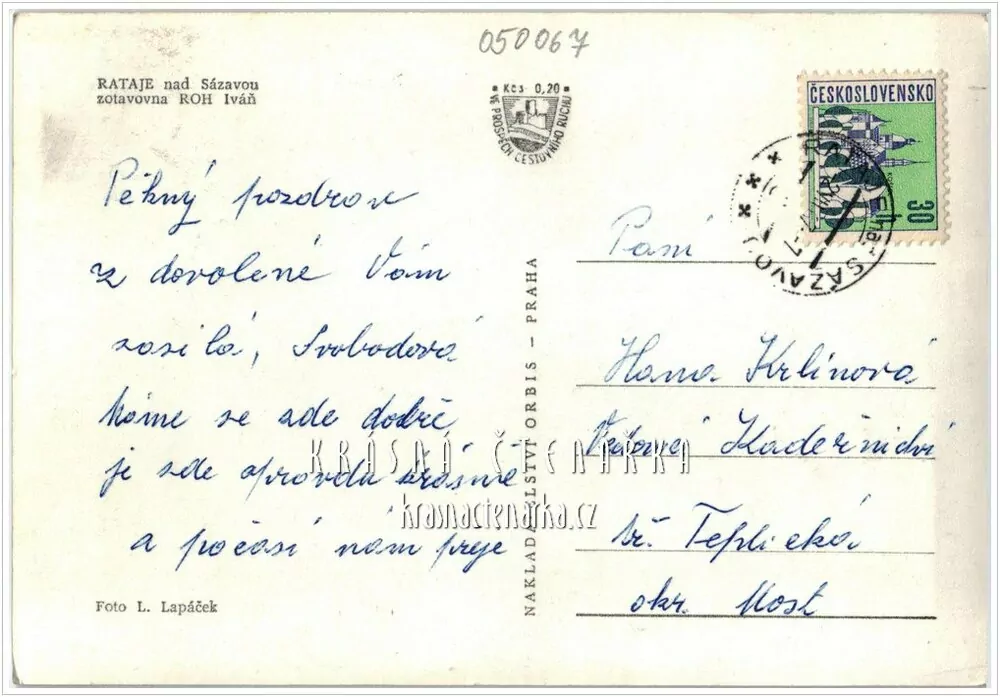 050067
RATAJE nad Sázavou
zotavovna ROH Iváň
Kčs 0,20
VE PROSPĚCH CESTOVNÍHO RUCHU
ČESKOSLOVENSKO
30
SÁZAVOU
Pěkný pozdrav
z dovolené Vám
zasílá, Svobodová
Máme se zde dobře
je zde opravdu krásně
a počasí nám přeje
Foto L. Lapáček
NAKLADATELSTVÍ ORBIS – PRAHA
Paní
Hana Krlínová
Kadeřnictví
tř. Teplická
okr. Most
KRÁSNÁ ČTENÁŘKA
krasnactenarka.cz